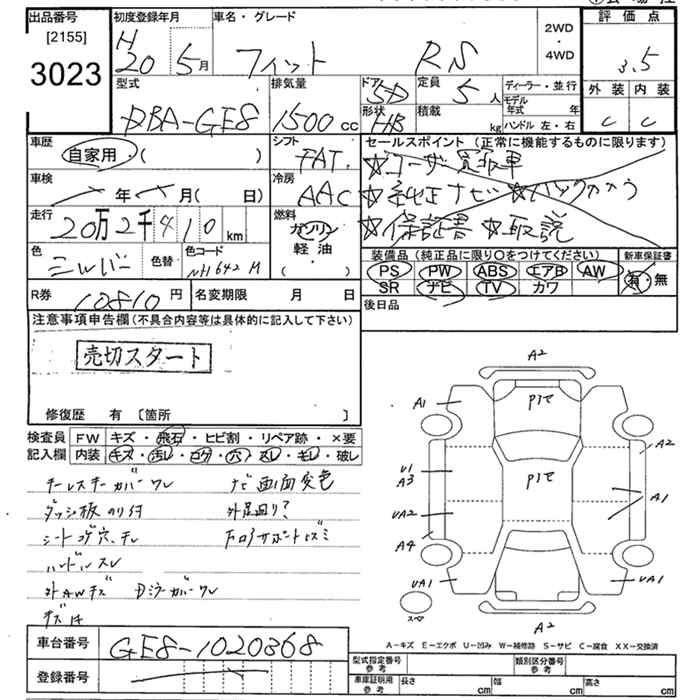 出品番号 初度登録年月 車名・グレード 評価点
[2155]
3023
H20 5月 フィット RS 2WD・4WD 3.5
型式 排気量 ドア 定員 ディーラー・並行 外装 内装
DBA-GE8 1500cc 5D 5人 モデル年式 年 C C
形状 HB 積載 kg ハンドル 左・右
車歴 シフト セールスポイント (正常に機能するものに限ります)
自家用・( ) FAT ☆ユーザー買取車
車検 冷房 ☆純正ナビ ☆バックカメラ
年 月( 日) AAC ☆保証書 ☆取説
走行 燃料
20万2千410km ガソリン
軽油
( )
色 色替 色コード 装備品 (純正品に限り○をつけてください) 新車保証書
シルバー NH642M PS PW ABS エアB AW 有・無
SR ナビ TV カワ
R券 10810円 名変期限 月 日 後日品
注意事項申告欄 (不具合内容等は具体的に記入して下さい)
売切スタート
修復歴 有 〔箇所 〕
検査員 FW キズ・飛石・ヒビ割・リペア跡・×要
記入欄 内装 キズ・汚レ・コゲ・穴・スレ・キレ・破レ
キーレスキーカバーワレ ナビ画面変色
ダッシ板のり付 外足回り?
シートコゲ穴、キレ
ハンドルスレ
外AWキズ Dミラーカバーワレ
A2
A1 P1て
A2
U1
A3
P1て
A1
UA2
A4
UA1 UA1
スペア
A2
A－キズ E－エクボ U－凹み W－補修跡 S－サビ C－腐食 XX－交換済
車台番号 GE8-1020868
登録番号
型式指定番号 参考 類別区分番号 参考
車庫証明用 参考 長さ cm 幅 cm 高さ cm